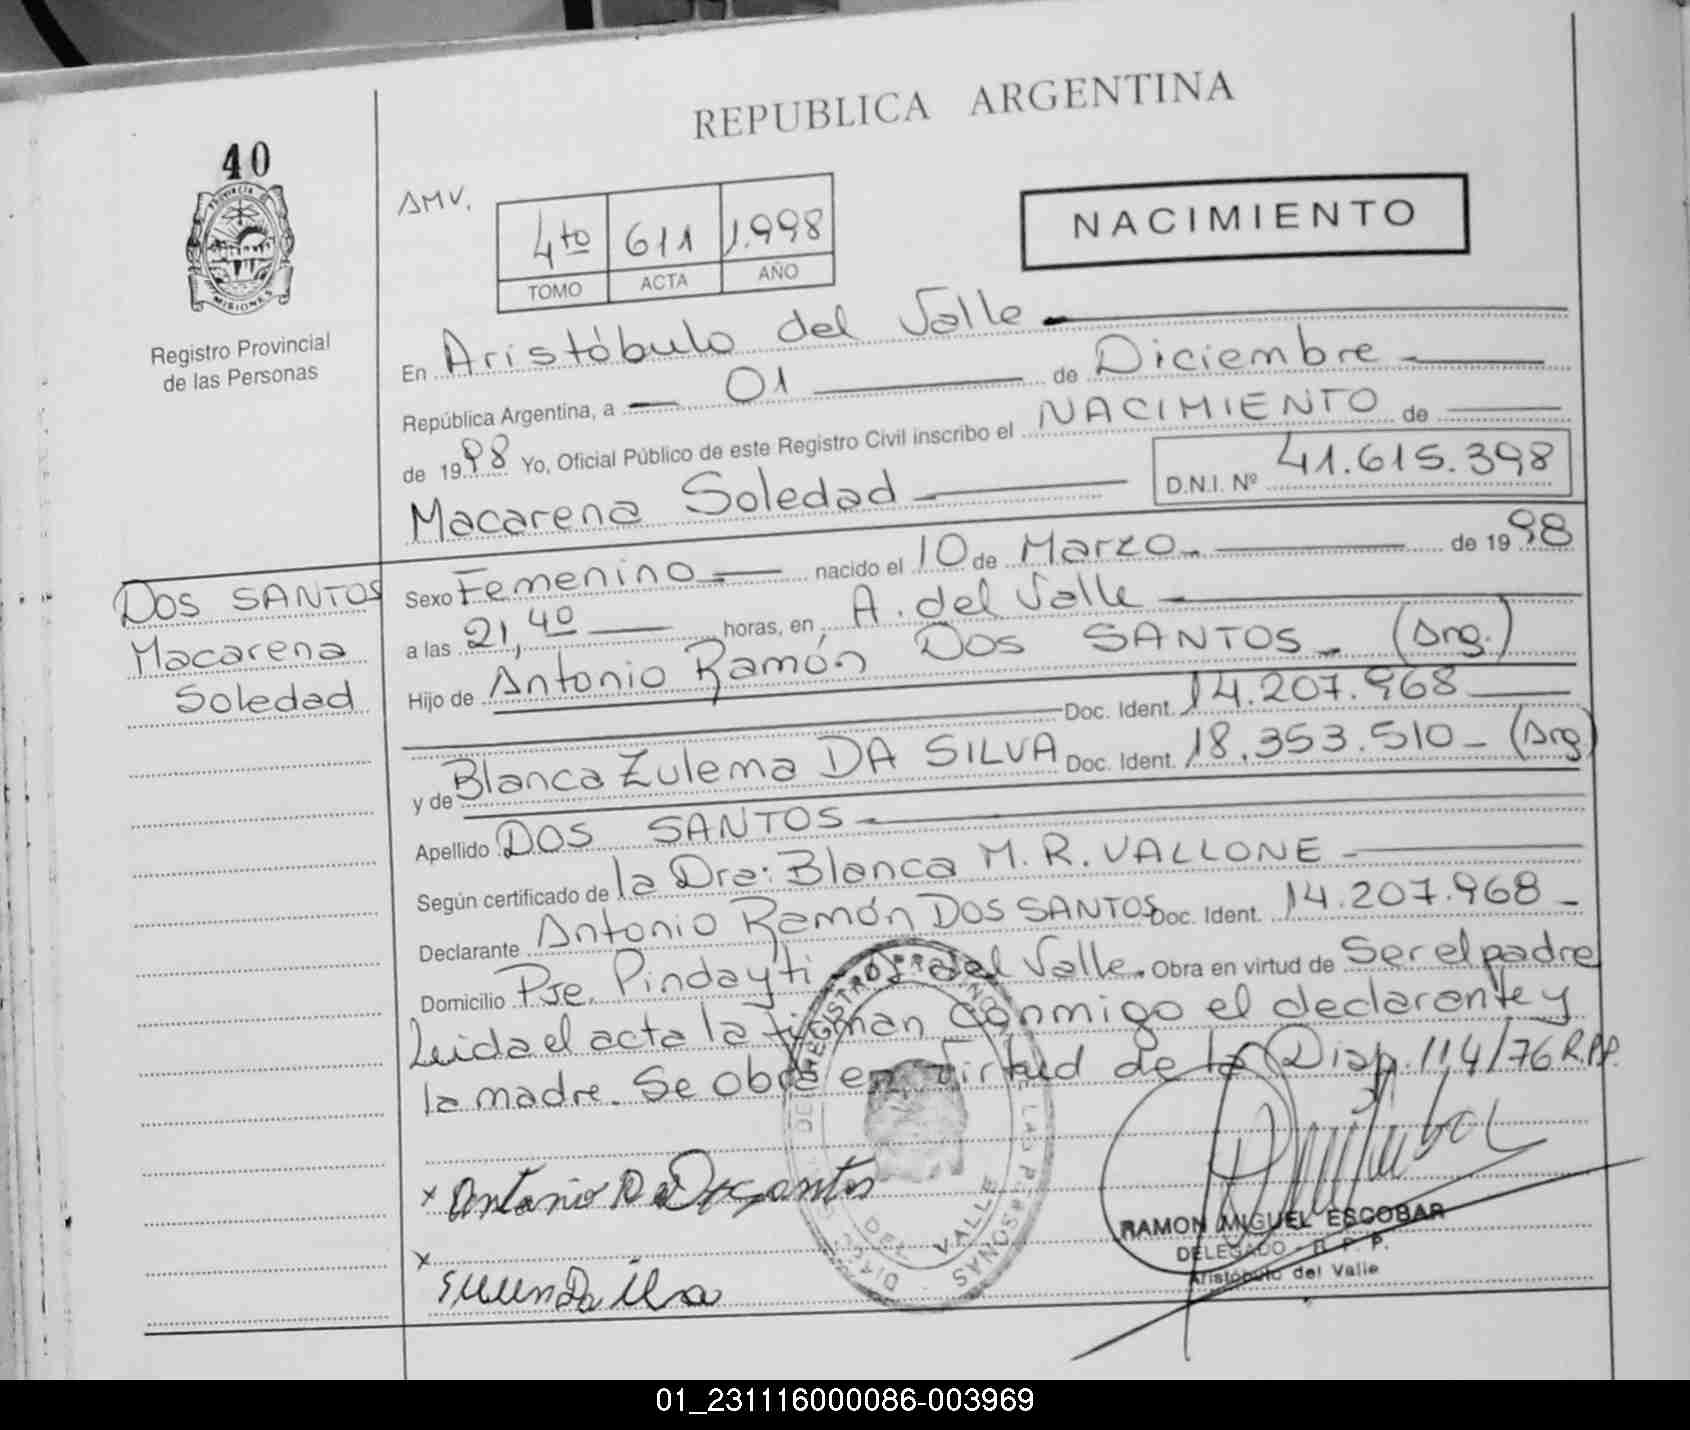 REPUBLICA ARGENTINA
40
PROVINCIA
MISIONES
Registro Provincial
de las Personas
AMV.
4to 611 1.998
TOMO ACTA AÑO
NACIMIENTO
En Aristóbulo del Valle
República Argentina, a 01 de Diciembre
de 1998 Yo, Oficial Público de este Registro Civil inscribo el NACIMIENTO de
Macarena Soledad D.N.I. Nº 41.615.398
DOS SANTOS
Macarena
Soledad
Sexo Femenino nacido el 10 de Marzo de 1998
a las 21,40 horas, en A. del Valle
Hijo de Antonio Ramón DOS SANTOS (Arg.)
Doc. Ident. 14.207.968
y de Blanca Zulema DA SILVA Doc. Ident. 18.353.510 (Arg)
Apellido DOS SANTOS
Según certificado de la Dra: Blanca M. R. VALLONE
Declarante Antonio Ramón DOS SANTOS Doc. Ident. 14.207.968
Domicilio Pje. Pindayti A. del Valle. Obra en virtud de Ser el padre
Leida el acta la firman conmigo el declarante y
la madre. Se obra en virtud de la Disp. 114/76 R.P.P.
x Antonio
x
DEL VALLE
RAMON MIGUEL ESCOBAR
DELEGADO - R. P. P.
Aristóbulo del Valle
01_231116000086-003969